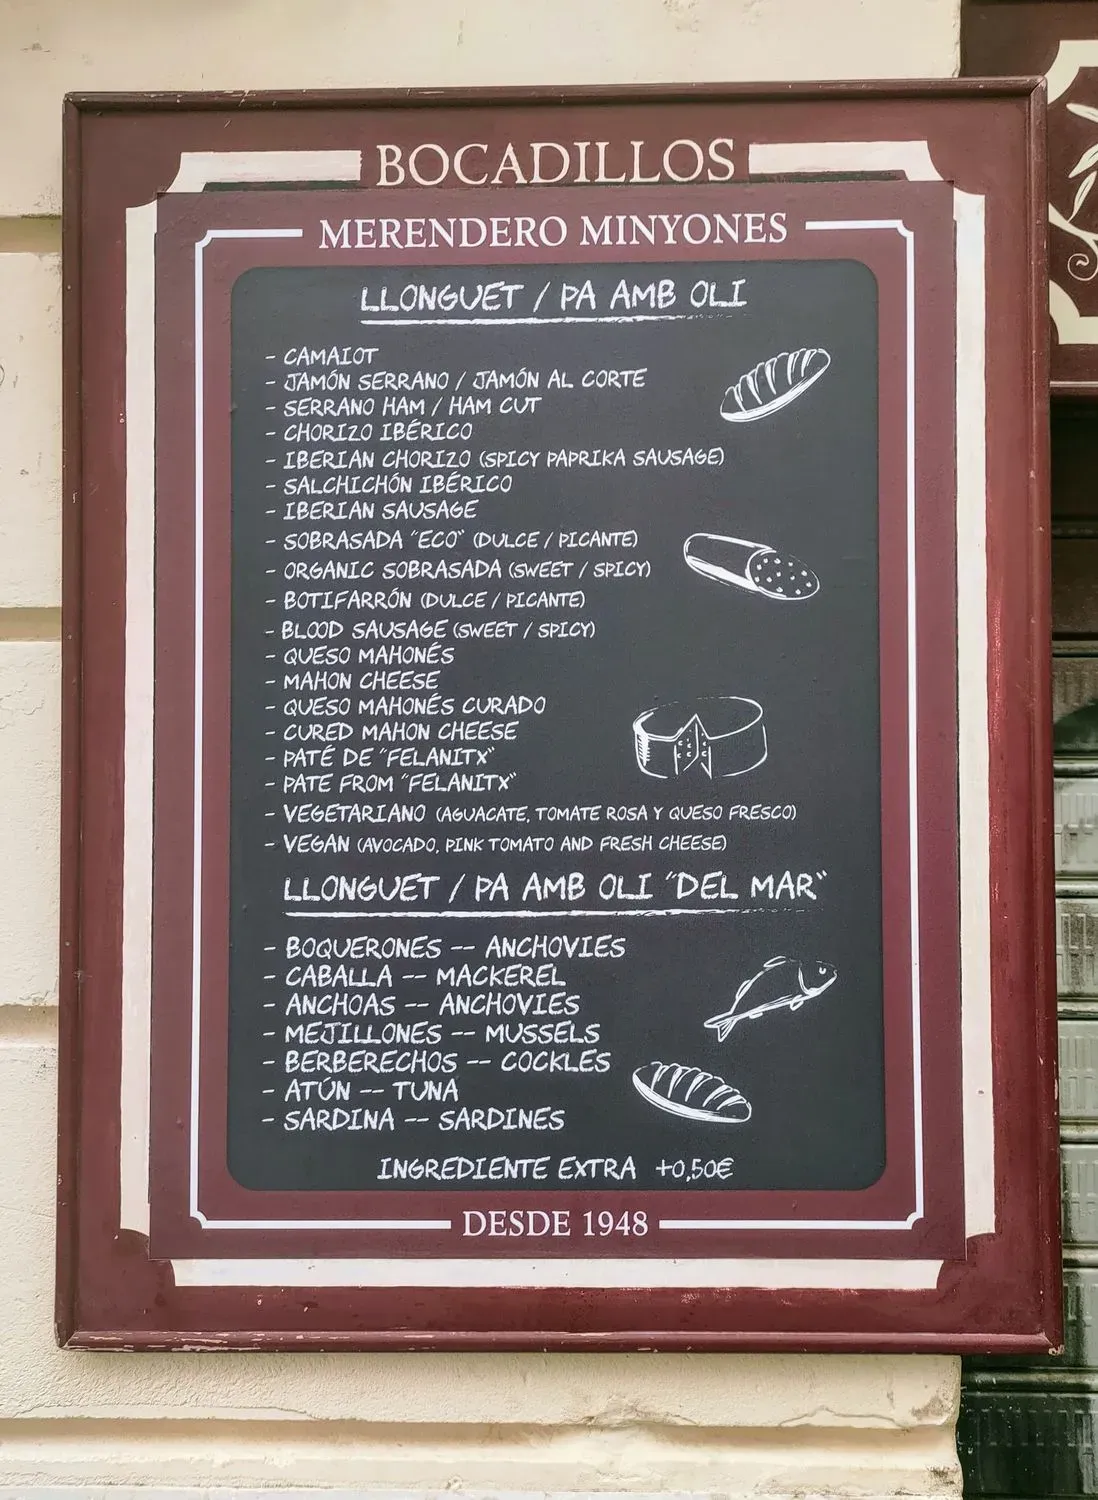 BOCADILLOS
MERENDERO MINYONES
LLONGUET / PA AMB OLI
- CAMAIOT
- JAMÓN SERRANO / JAMÓN AL CORTE
- SERRANO HAM / HAM CUT
- CHORIZO IBÉRICO
- IBERIAN CHORIZO (SPICY PAPRIKA SAUSAGE)
- SALCHICHÓN IBÉRICO
- IBERIAN SAUSAGE
- SOBRASADA "ECO" (DULCE / PICANTE)
- ORGANIC SOBRASADA (SWEET / SPICY)
- BOTIFARRÓN (DULCE / PICANTE)
- BLOOD SAUSAGE (SWEET / SPICY)
- QUESO MAHONÉS
- MAHON CHEESE
- QUESO MAHONÉS CURADO
- CURED MAHON CHEESE
- PATÉ DE "FELANITX"
- PATE FROM "FELANITX"
- VEGETARIANO (AGUACATE, TOMATE ROSA Y QUESO FRESCO)
- VEGAN (AVOCADO, PINK TOMATO AND FRESH CHEESE)
LLONGUET / PA AMB OLI "DEL MAR"
- BOQUERONES -- ANCHOVIES
- CABALLA -- MACKEREL
- ANCHOAS -- ANCHOVIES
- MEJILLONES -- MUSSELS
- BERBERECHOS -- COCKLES
- ATÚN -- TUNA
- SARDINA -- SARDINES
INGREDIENTE EXTRA +0,50€
DESDE 1948